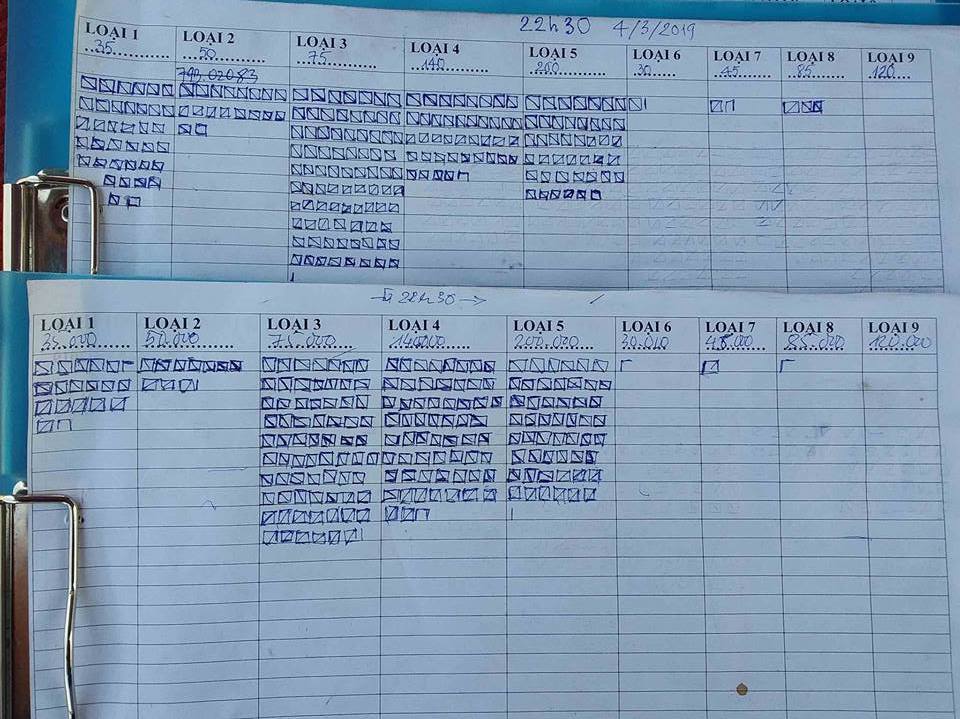 22h30 4/3/2019
LOẠI 1 LOẠI 2 LOẠI 3 LOẠI 4 LOẠI 5 LOẠI 6 LOẠI 7 LOẠI 8 LOẠI 9
35 50 75 140 200 30 45 85 120
22h30
LOẠI 1 LOẠI 2 LOẠI 3 LOẠI 4 LOẠI 5 LOẠI 6 LOẠI 7 LOẠI 8 LOẠI 9
35.000 50.000 75.000 140000 200.000 30.000 45.000 85.000 120.000